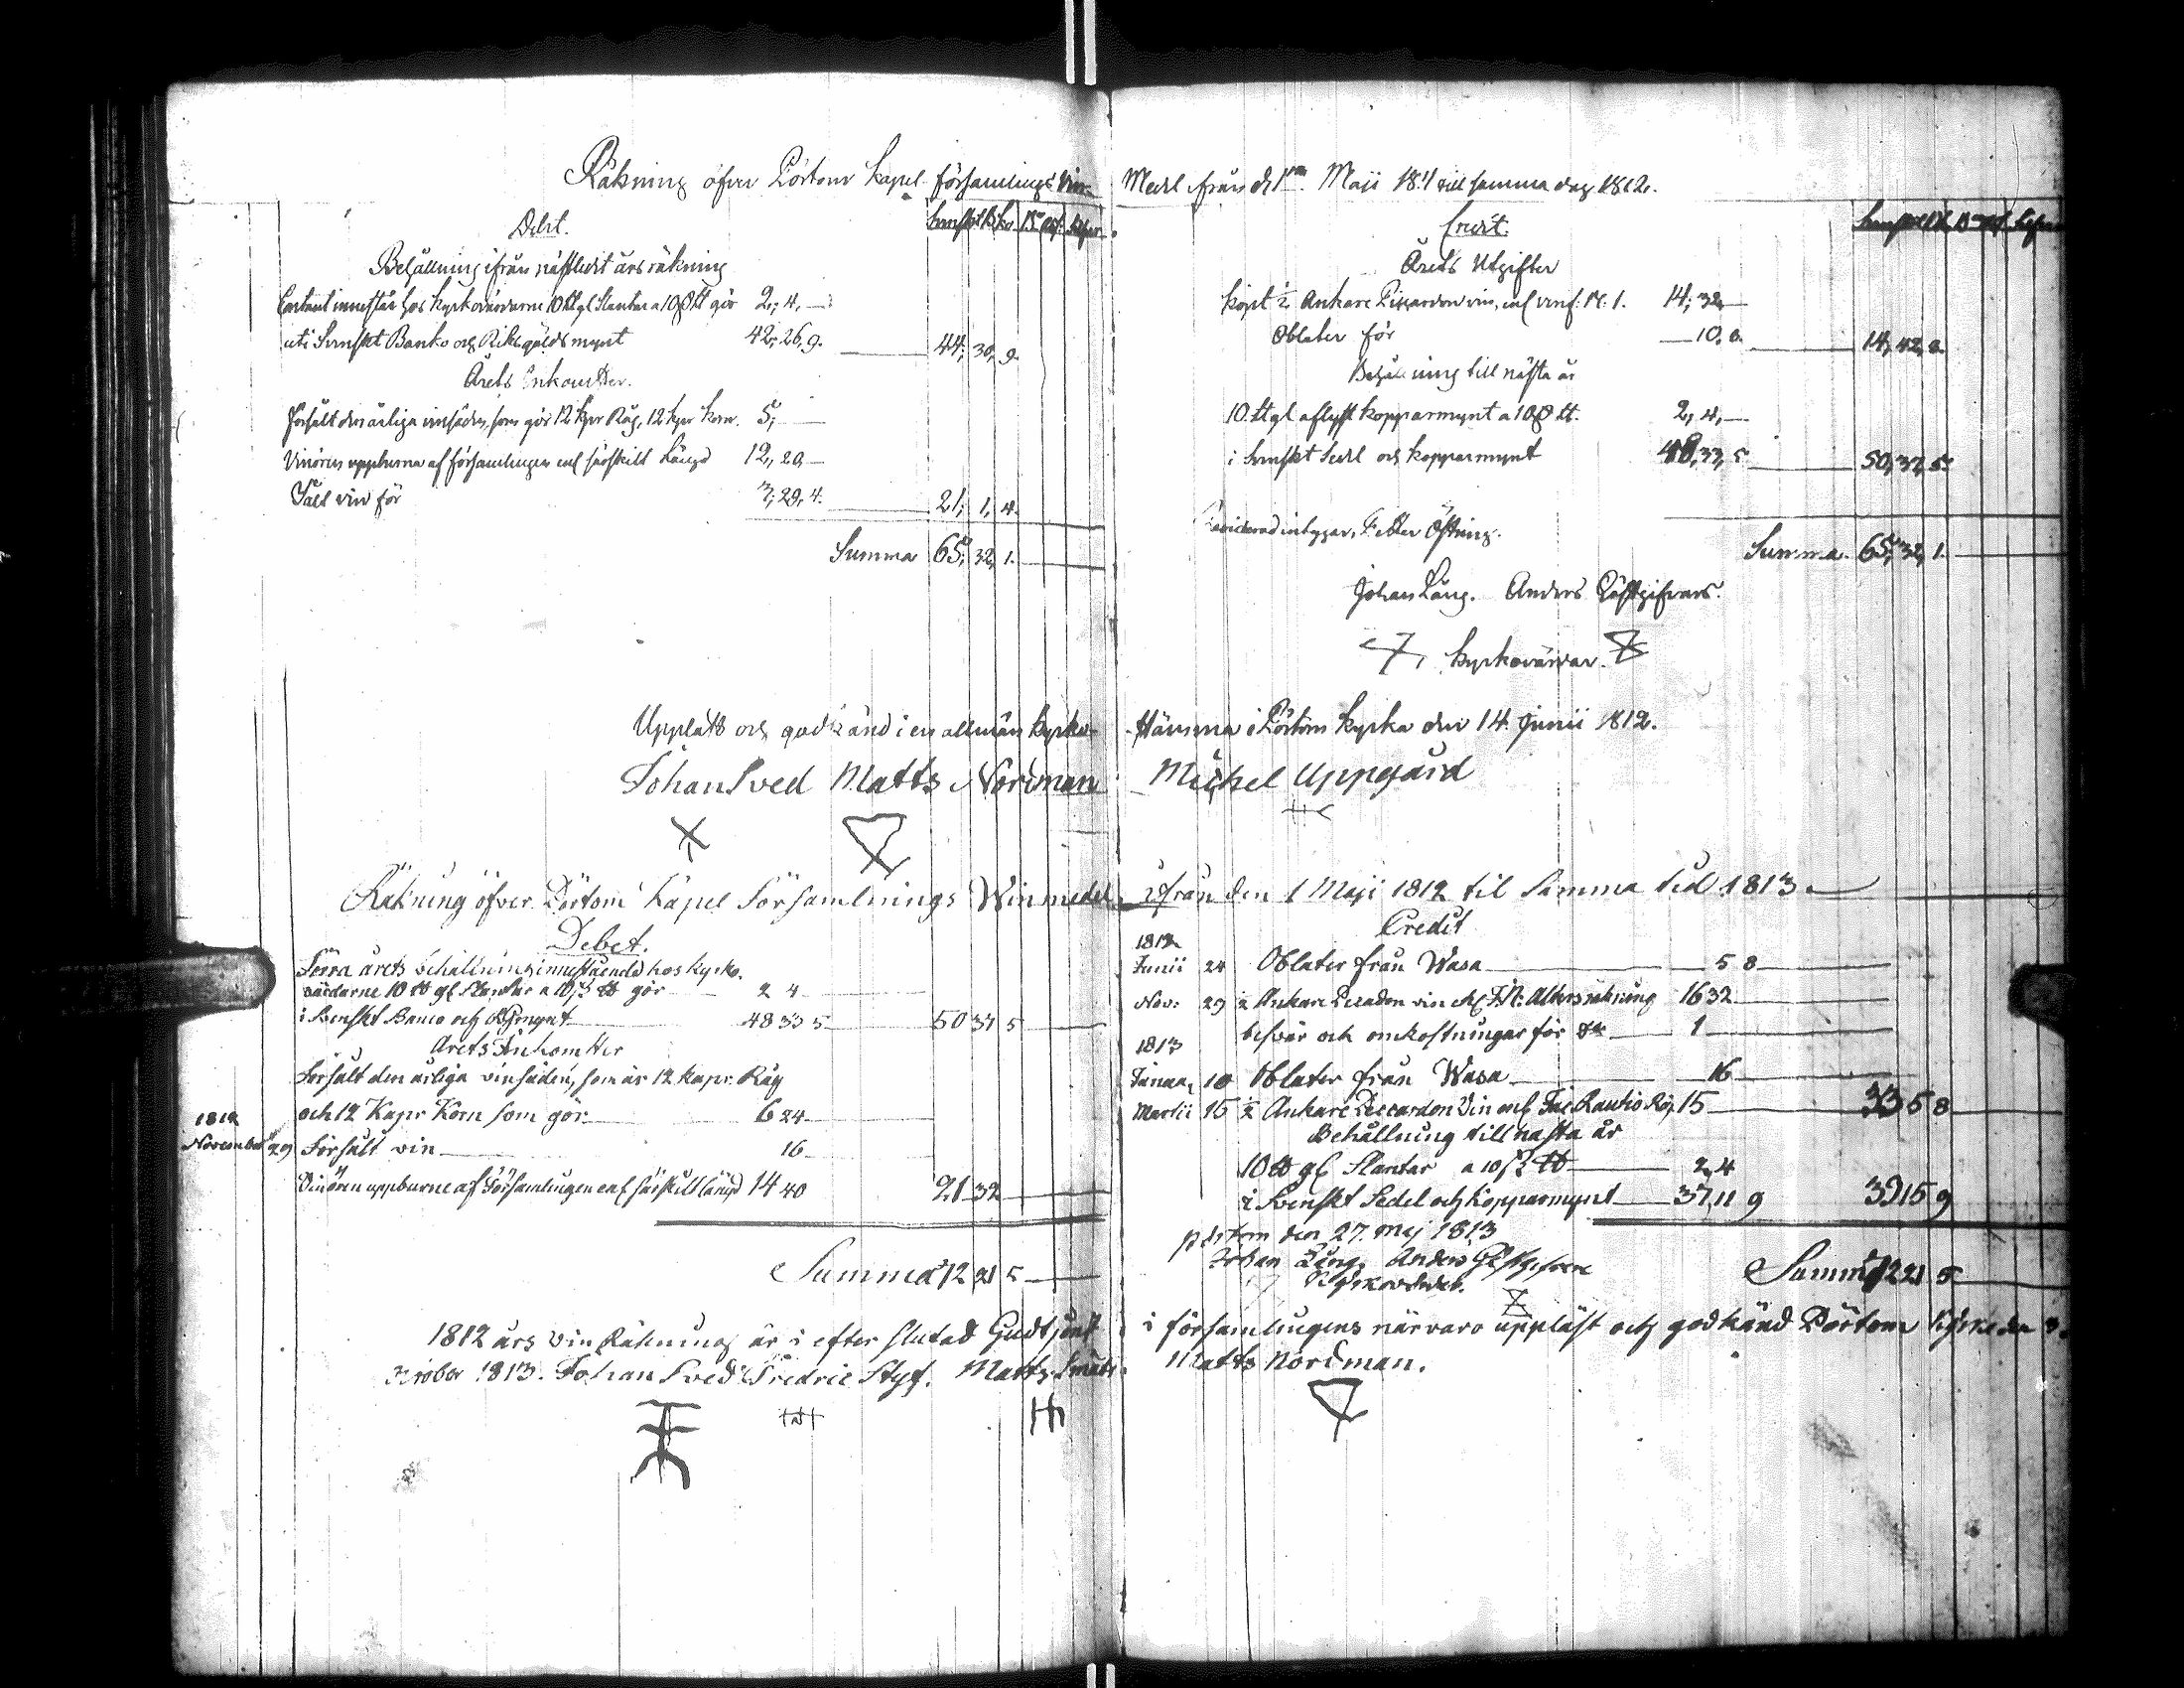 Räkning öfver Pörtom Kapel församlings Vin-
Debet.
Behållning ifrån nästledit års räkning
Contant innestår hos kyrkovärdarne 10 tt gl Slantar a 10 ß tt gör 2,, 4,, —
uti Svenskt Banko och Riksgälds mynt 42,, 26, 9. 44,, 30, 9.
Årets Inkomster.
Försålt den årliga vinsäden, som gör 12 kpr Råg, 12 kpr korn. 5,,
Vinören uppburna af församlingen enl särskild Längd 12,, 20, —
Sålt vin för 3,, 29, 4. 21,, 1, 4.
Summa 65,, 32, 1.
Medl ifrån d 1sta Maii 1811 till samma dag 1812.
Credit.
Årets Utgifter
Köpt ½ Ankare Piccardon vin, enl verif: N. 1. 14,, 32, —
Oblater för — 10, 8. 14,, 42, 8.
Behållning till nästa år
10. tt gl aflyst kopparmynt a 10 ß tt. 2,, 4,, —
i Svenskt Sedl och kopparmynt 48,, 33, 5. 50, 37, 5.
Summa 65,, 32, 1.
Johan Lång. Anders Gästgifvars.
Kyrkovärdar.
Uppläst och godkänd i en allmän Kyrko-
stämma i Pörtom kyrka den 14 Junii 1812.
Johan Sved Matts Nordman Michel Uppgård
Räkning öfver Pörtom Kapel Församlings Winmedel
ifrån den 1 Maji 1812 til Samma tid 1813
Debet.
Förra årets behållning innestående hos kyrko-
värdarne 10 tt gl Slantar a 10 ß tt gör 2 4
i Svenskt Banco och mynt 48 33 5 50 37 5
Årets Inkomster
Försålt den årliga vinsäden, som är 12 Kapr Råg
och 12 Kapr Korn som gör 6 24
1812
November 29 Försålt vin 16
Vinören uppburne af Församlingen enl särskilt längd 14 40 21 32
Summa 72 21 5
Credit
1812
Junii 24 Oblater från Wasa 5 8
Nov: 29 ½ Ankare Piccadon vin 16 32
besvär och omkostningar för 1
1813
Januar, 10 Oblater från Wasa 16
Martii 15 ½ Ankare Piccardon Vin enl Rautio 15 33 5 8
Behållning till nästa år
10 tt gl Slantar a 10 ß tt 2,4
i Svenskt Sedel och Kopparmynt 37,11 9 39 15 9
Pörtom den 27. Mej 1813
Johan Lång, Anders Gästgifvare
Kyrkovärdar.
Summa 72 21 5
1812 års vin Räkning är i efter slutad Gudstjenst
i församlingens närvaro uppläst och godkänd Pörtom Kyrka den 3.
October 1813. Johan Sved Fredric Styf. Matts Småts. Matts Nordman.